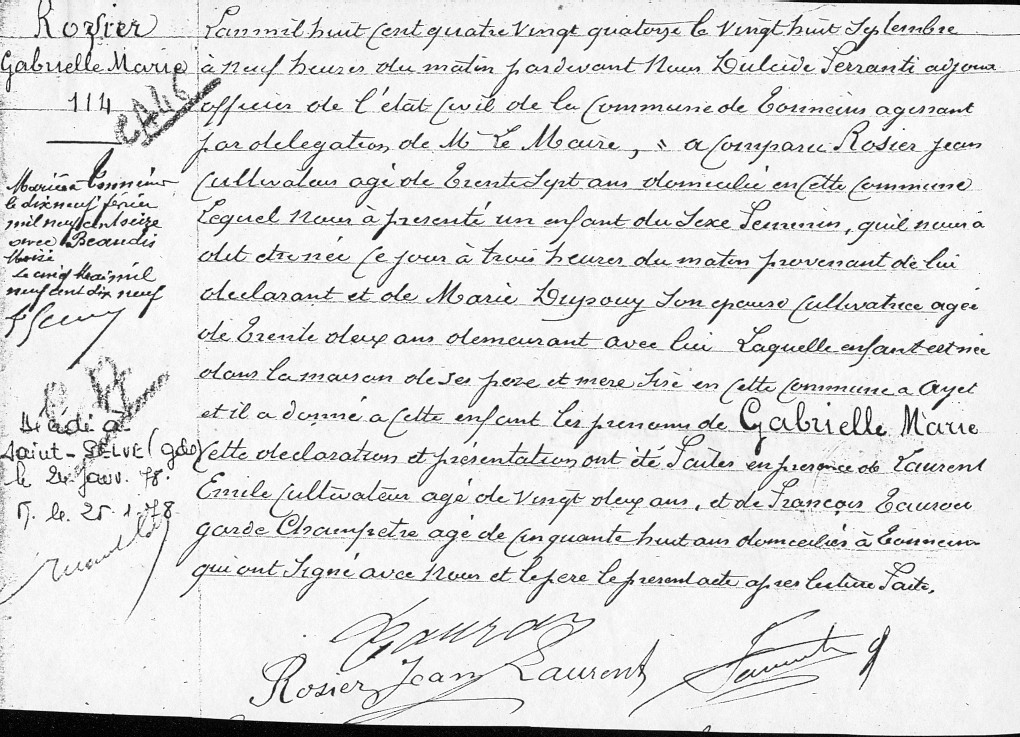 Rosier
Gabrielle Marie
114
Mariée à Tonneins
le dix neuf février
mil neuf cent seize
avec Beaudis
Moïse
Le cinq Mai mil
neuf cent dix neuf
Décédée à
Saint-SELVE (gde)
le 24 Janv. 78.
le 25.1.78.
L'an mil huit cent quatre vingt quatorze le vingt huit Septembre
à neuf heures du matin pardevant Nous Dulcide Ferranti adjoint
officier de l'état civil de la Commune de Tonneins agissant
par délégation de Mr Le Maire, " a comparu Rosier Jean
Cultivateur agé de Trente Sept ans domicilié en cette commune
Lequel Nous à presenté un enfant du Sexe Feminin, quil nous à
dit etre née ce jour à trois heures du matin provenant de lui
declarant et de Marie Dupouy Son epouse Cultivatrice agée
de Trente deux ans demeurant avec lui Laquelle enfant est née
dans la maison de ses pere et mere Sise en cette commune a Ayet
et il a donné a cette enfant les prenoms de Gabrielle Marie
Cette declaration et présentation ont été Faites en presence de Laurent
Emile Cultivateur agé de vingt deux ans, et de François Tauran
garde Champetre agé de cinquante huit ans domiciliés à Tonneins
qui ont Signé avec Nous et le pere le present acte apres lecture Faite.
Tauran
Rosier Jean Laurent